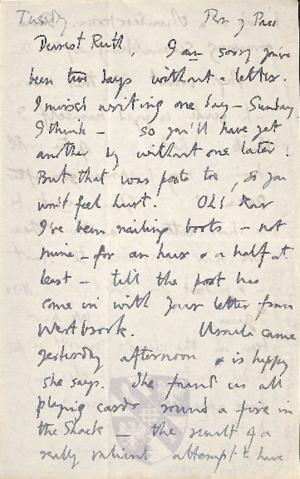 Tuesday Pen y Pass
Dearest Ruth, I am sorry you've
been two days without a letter.
I missed writing one day – Sunday
I think – so you'll have yet
another day without one later.
But that was posted too, so you
won't feel hurt. Oh! dear
I've been nailing boots – not
mine – for an hour & a half at
least – till the post has
come in with your letter from
Westbrook. Ursula came
yesterday afternoon & is happy
she says. She found us all
playing cards round a fire in
the Shack – the result of a
really valiant attempt to have